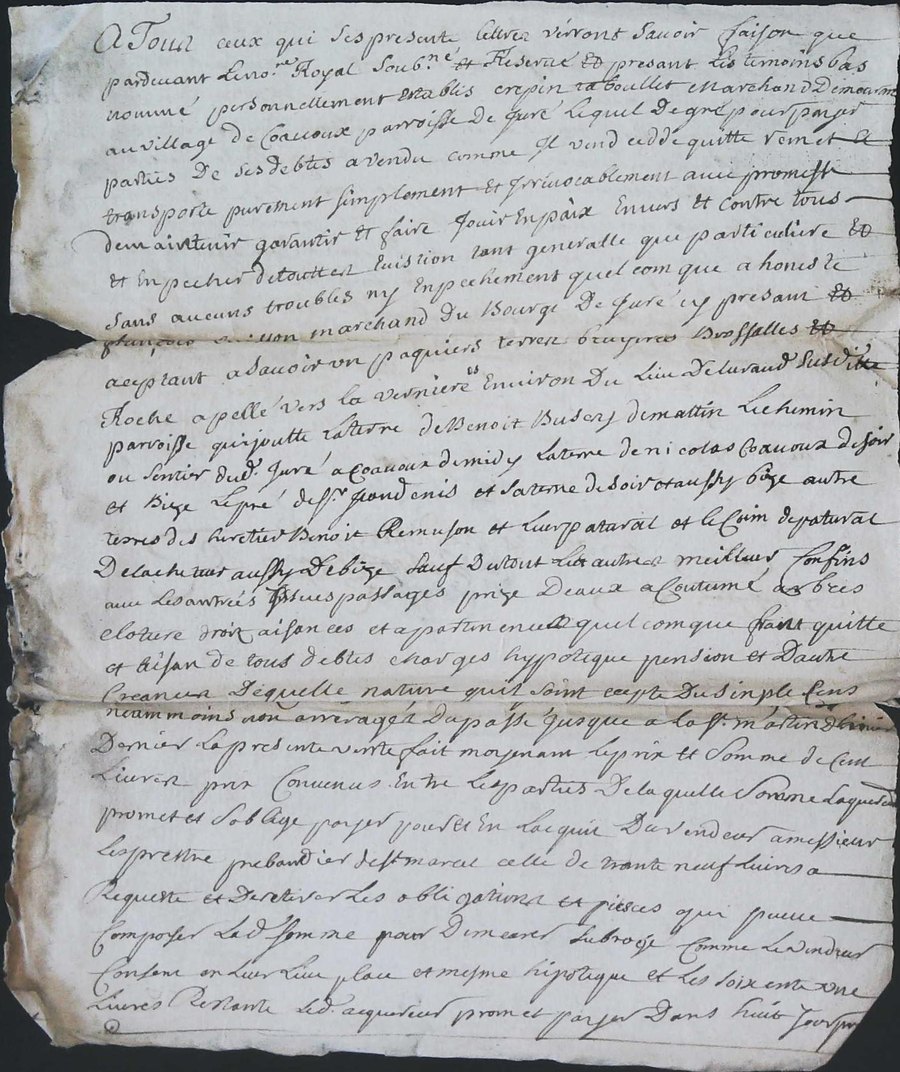 A Tous ceux qui ses presente lettres verront savoir faison que
pardevant Le no.re Royal Soub.né et Reservé et presant Les temoins bas
nommé personnellement Etablis crepin taboullet Marchand Demeurant
au village de Coavoux parroisse de Juré lequel De gré pour payer
parties De ses debtes a vendu comme Il vend cedde quitte remet Et
transporte purement simplement Et Irrevocablement avec promesse
de maintenir garantir Et faire Jouir En paix Envers Et contre tous
et En pecher de toutter Evistion tant generalle que particuliere Et
sans aucuns troubles ny Enpechement quel com que a honeste
françois marchand du Bourg De Juré cy presant Et
aceptant a Savoir un paquiers terres bruyeres Brossalles Et
Roche apellé vers la Verniere Environ Du Lieu De susditte
parroisse qui joutte La terre de Benoit Busery de mattin Le chemin
ou sentier dud. Juré a Coavoux de midy La terre de nicolas Coavoux de soir
et Bize Le pré de S.r Jean denis et sa terre de soir et aussy bize autre
terres des heretier Benoit Remuson et Leur patural et le Coin de patural
De lacheteur aussy De bize sauf Du tout Les autres meilleur Confins
avec Les antrés Issues passages prize Deaux a Coutumé arbres
cloture droit aisances et apartinences quel com que franc quitte
et de tous debtes charges hypoteque pension et Dautre
Creancier De quelle nature quil soint ecepte Du simple Cens
neammoins non arreragér Du passé Jusque a la St. martin D hiver
Dernier La presente vente fait moyenant le prix Et Somme de Cent
Livres prix Convenus Entre Les parties De la quelle Somme Laquereur
promet et soblige payer pour Et En Lacquit Du vendeur a messieur
Les prestre prebandier de st marcel celle de trante neuf Livres a
Requeste et De retirer Les obligations et pieces qui peuve
Composer La d. somme pour Demeurer subrogé Comme Le vendeur
Consent en Leur Lieu place et mesme hipoteque et Les soixente une
Livres Restante Led. acquereur promet payer Dans huit Jour